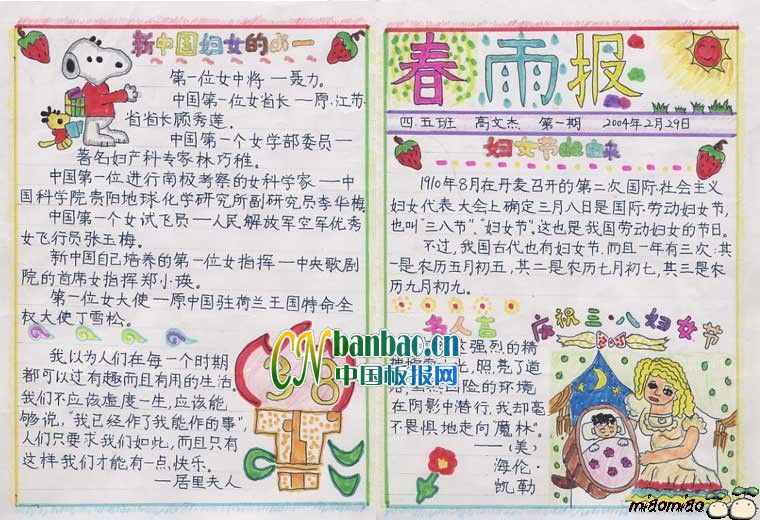 新中国妇女的第一
第一位女中将——聂力。
中国第一位女省长——原·江苏
省省长顾秀莲。
中国第一个女学部委员——
著名妇产科专家林巧稚。
中国第一位进行南极考察的女科学家——中
国科学院贵阳地球化学研究所副研究员李华梅
中国第一个女试飞员——人民解放军空军优秀
女飞行员张玉梅。
新中国自己培养的第一位女指挥——中央歌剧
院的首席女指挥郑小瑛。
第一位女大使——原中国驻荷兰王国特命全
权大使丁雪松。
我以为人们在每一个时期
都可以过有趣而且有用的生活
我们不应该虚度一生,应该能
够说,“我已经作了我能作的事”,
人们只要求我们如此,而且只有
这样我们才能有一点,快乐。
——居里夫人
38
春雨报
四.五班 高文杰 第一期 2004年2月29日
妇女节的由来
1910年8月在丹麦召开的第二次国际社会主义
妇女代表大会上确定三月八日是国际劳动妇女节,
也叫“三八节”、“妇女节”。这也是我国劳动妇女的节日。
不过,我国古代也有妇女节.而且一年有三次:其
一是农历五月初五,其二是农历七月初七,其三是农
历九月初九。
名人言
强烈的精
照亮了道
险的环境,
在阴影中潜行,我却毫
不畏惧地走向“魔林”。
——(美)
海伦·
凯勒
庆祝三·八妇女节
CNbanbao.cn
中国板报网
miaomiao